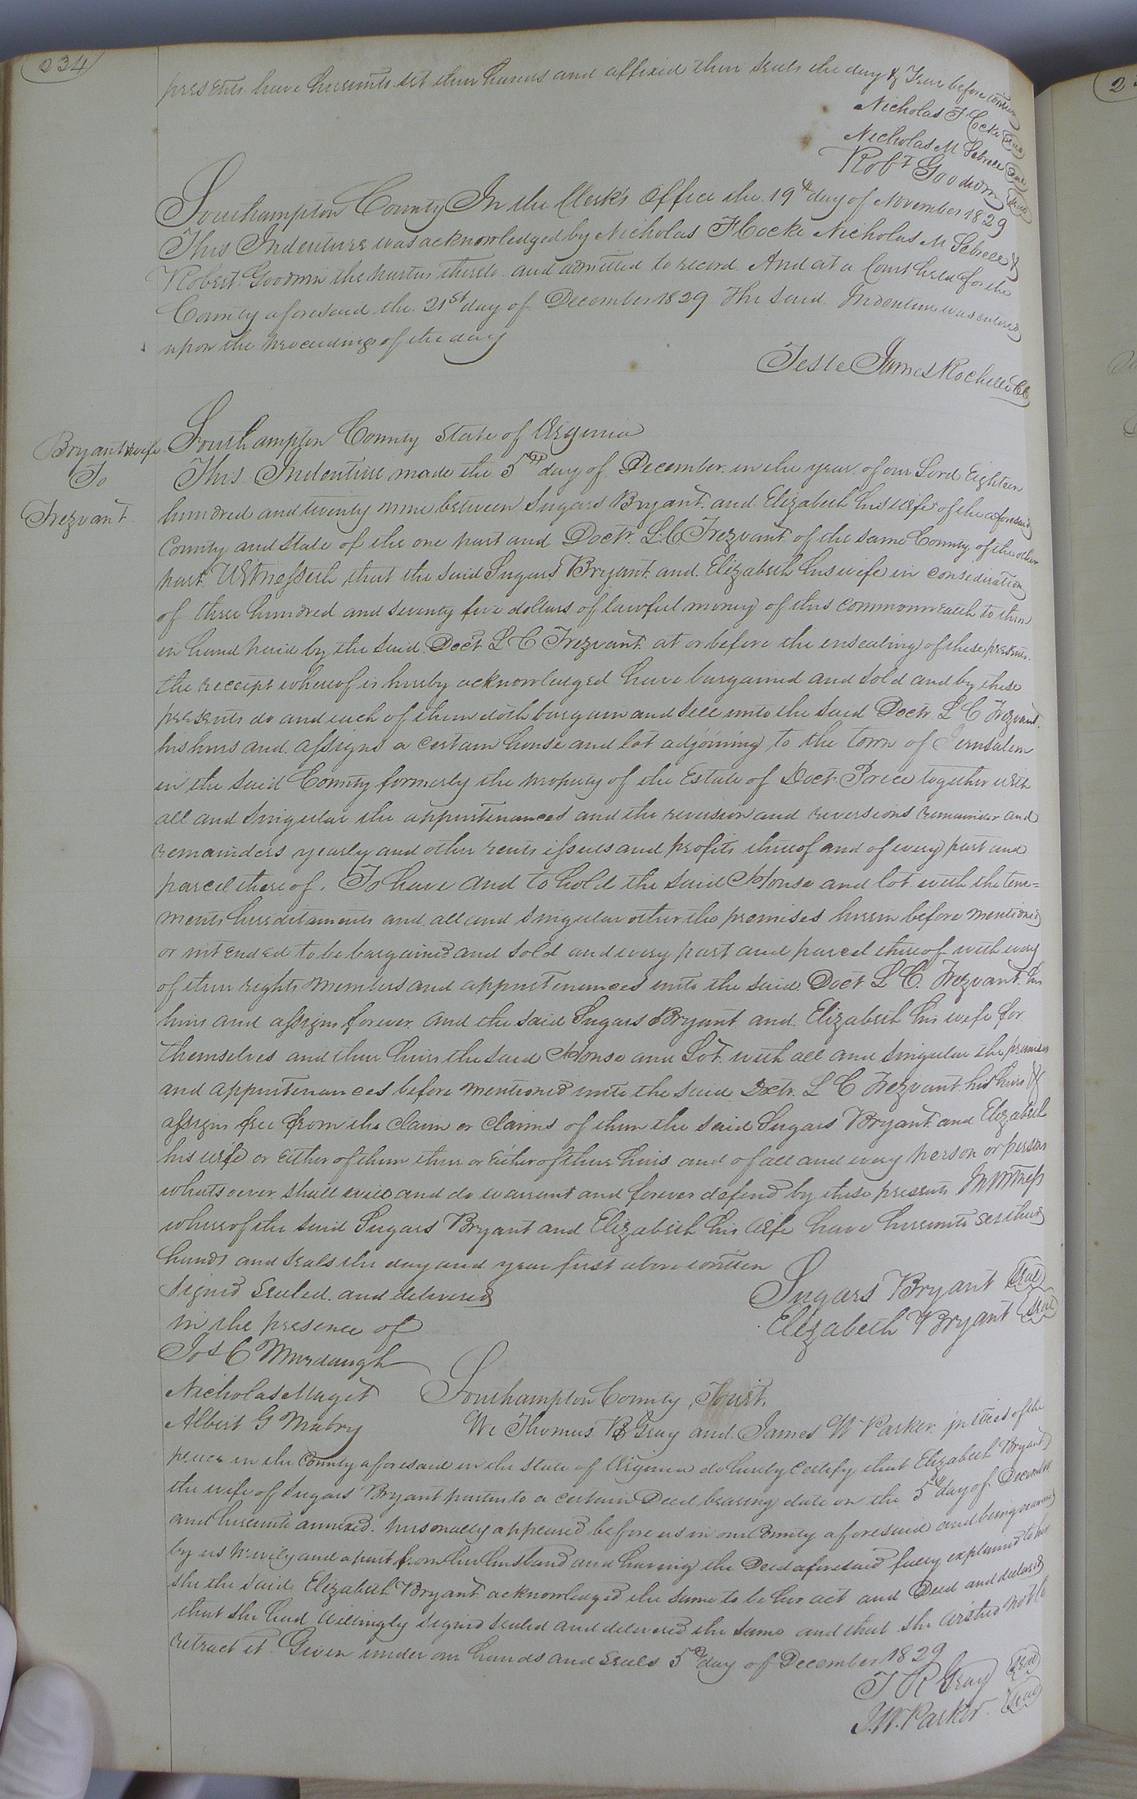 234
presents have hereunto set their hands and affixed their seals the day & Year before written
Nicholas F Cocke seal
Nicholas M Sebrell seal
Robt Goodwin seal
Southampton County In the Clerk's Office the 19th day of November 1829
This Indenture was acknowledged by Nicholas F Cocke Nicholas M Sebrell &
Robert Goodwin the parties thereto and admitted to record And at a Court held for the
County aforesaid the 21st day of December 1829 The said Indenture was entered
upon the proceedings of the day
Teste James Rochelle CC
Bryant & wife
To
Trezvant
Southampton County State of Virginia
This Indenture made the 5th day of December in the year of our Lord Eighteen
hundred and twenty nine between Sugars Bryant and Elizabeth his wife of the aforesaid
County and State of the one part and Doctr. L. C Trezvant of the same County of the other
part Witnesseth that the said Sugars Bryant and Elizabeth his wife in consideration
of three hundred and seventy five dollars of lawful money of this commonwealth to them
in hand paid by the said Doct L C Trezvant at or before the ensealing of these presents
the receipt whereof is hereby acknowledged have bargained and sold and by these
presents do and each of them doth bargain and sell unto the said Doctr. L C Trezvant
his heirs and assigns a certain house and lot adjoining to the town of Jerusalem
in the said County formerly the property of the Estate of Doctr Price together with
all and singular the appurtenances and the reversion and reversions remainder and
remainders yearly and other rents issues and profits thereof and of every part and
parcel thereof. To have and to hold the said House and lot with the tene=
ments hereditaments and all and singular other the premises herein before mentioned
or intended to be bargained and sold and every part and parcel thereof with every
of their rights members and appurtenances unto the said Doct L C. Trezvant his
heirs and assigns forever and the said Sugars Bryant and Elizabeth his wife for
themselves and their heirs the said House and Lot with all and singular the premises
and appurtenances before mentioned unto the said Doctr. L C Trezvant his heirs &
assigns free from the claim or claims of them the said Sugars Bryant and Elizabeth
his wife or either of them their or either of their heirs and of all and every person or persons
whatsoever shall will and do warrant and forever defend by these presents In Witness
whereof the said Sugars Bryant and Elizabeth his wife have hereunto set their
hands and seals the day and year first above written
Signed sealed and delivered
in the presence of
Jos C Murdaugh
Nicholas Maget
Albert G Mabry
Sugars Bryant seal
Elizabeth Bryant seal
Southampton County, Towit,
We Thomas R Gray and James W Parker justices of the
peace in the County aforesaid in the state of Virginia do hereby certify that Elizabeth Bryant
the wife of Sugars Bryant parties to a certain Deed bearing date on the 5th day of December
and hereunto annexed personally appeared before us in our County aforesaid and being examined
by us privily and apart from her husband and having the Deed aforesaid fully explained to her
She the said Elizabeth Bryant acknowledged the same to be her act and Deed and declared
that she had willingly signed sealed and delivered the same and that she wished not to
retract it Given under our hands and seals 5th day of December 1829
T R Gray seal
J. W. Parker seal